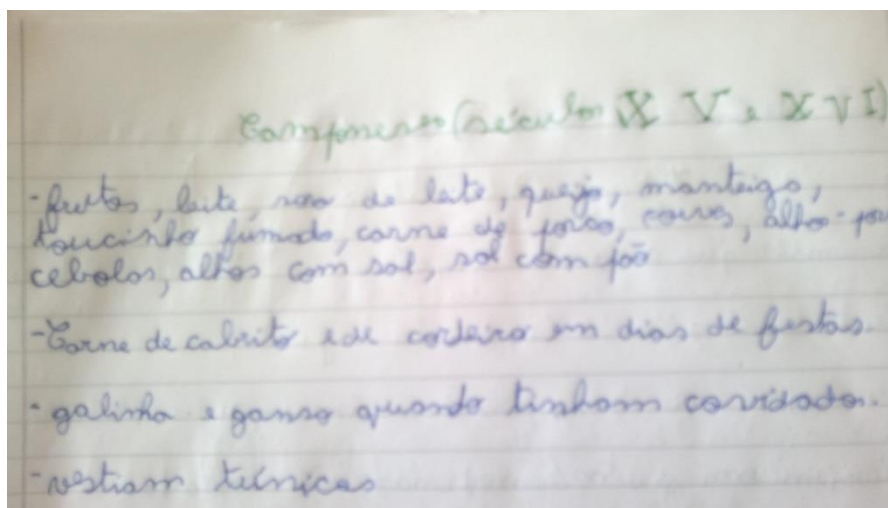 Camponeses (séculos XV e XVI)
- frutas, leite, soro de leite, queijo, manteiga,
toucinho fumado, carne de porco, couves, alho-po
cebolas, alhos com sal, sal com pão
- Carne de cabrito e de cordeiro em dias de festas.
- galinha e ganso quando tinham convidados.
- vestiam túnicas